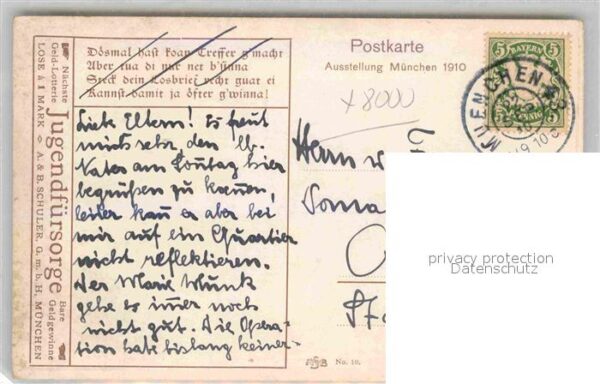 Dösmal hast koan Treffer g'macht
Aber tua di nur net b'sinna
Steck dein Losbrief recht guat ei
Kannst damit ja öfter g'winna!
Postkarte
Ausstellung München 1910
x 8000
5 BAYERN 5
PFENNIG
MUENCHEN
Nächste
Geld-Lotterie
Jugendfürsorge
Bare
Geldgewinne
LOSE à 1 MARK ◇ A. & B. SCHULER, G. m. b. H, MÜNCHEN
Liebe Eltern! Es freut
mich sehr, den lb.
Vater am Sonntag hier
begrüßen zu können,
leider kann er aber bei
mir auf ein Quartier
nicht reflektieren.
Der Marie Wunk
gehe es immer noch
nicht gut. Die Opera-
tion habe bislang keiner-
Herrn
privacy protection
Datenschutz
No. 10.